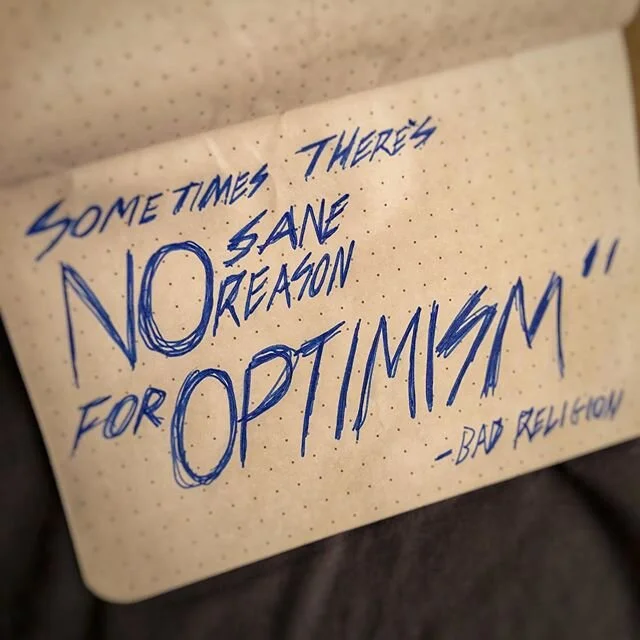 SOMETIMES THERE'S
NO SANE
REASON
FOR OPTIMISM"
-BAD RELIGION